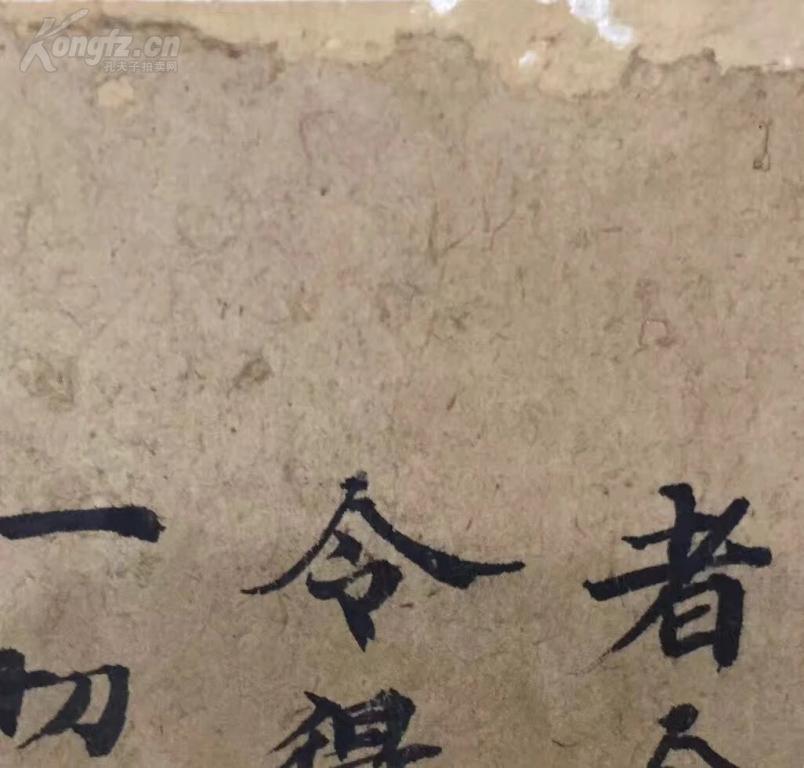 Kongfz.cn
孔夫子拍卖网
者
令得
一切